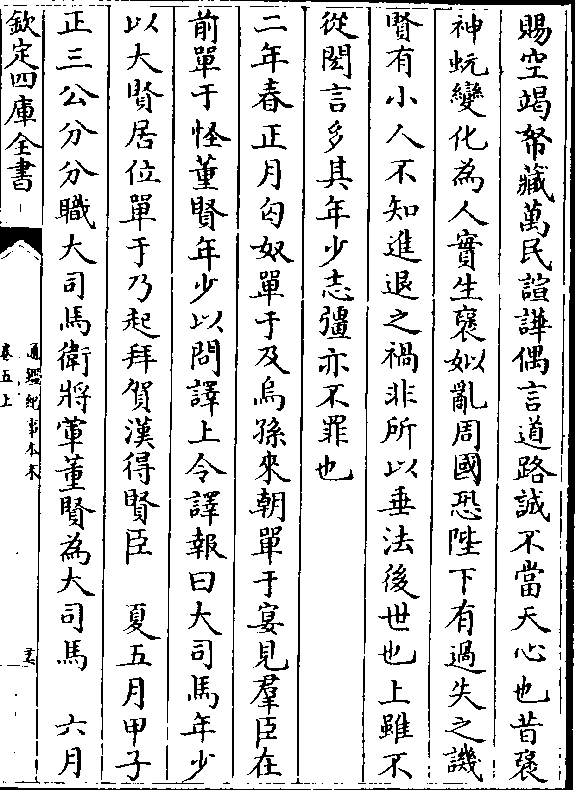 賜空竭帑藏萬民諠譁偶言道路誠不當天心也昔褒
神蚖變化為人實生褒姒亂周國恐陛下有過失之譏
賢有小人不知進退之禍非所以垂法後世也上雖不
從閎言多其年少志彊亦不罪也
二年春正月匈奴單于及烏孫來朝單于宴見羣臣在
前單于怪董賢年少以問譯上令譯報曰大司馬年少
以大賢居位單于乃起拜賀漢得賢臣　夏五月甲子
正三公分分職大司馬衛將軍董賢為大司馬　六月
欽定四庫全書
通鑑紀事本末
卷五上